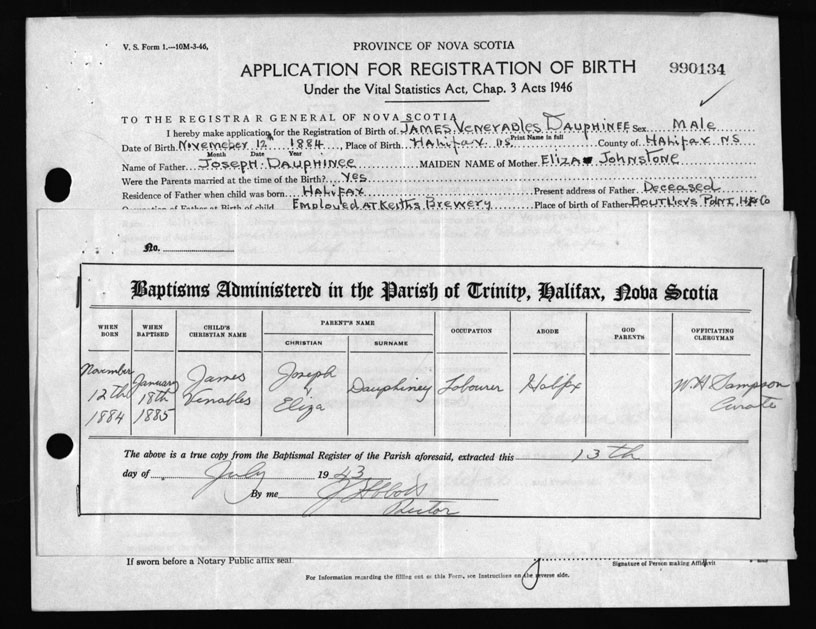 V. S. Form 1.—10M-3-46,
PROVINCE OF NOVA SCOTIA
APPLICATION FOR REGISTRATION OF BIRTH
990134
Under the Vital Statistics Act, Chap. 3 Acts 1946
TO THE REGISTRAR GENERAL OF NOVA SCOTIA
I hereby make application for the Registration of Birth of JAMES Venerables DAUPHINEE Sex MALE
Print Name in full
Date of Birth November 12th 1884 Place of Birth Halifax NS County of Halifax NS
Month Date Year
Name of Father JOSEPH DAUPHINEE MAIDEN NAME of Mother Eliza Johnstone
Were the Parents married at the time of the Birth? Yes
Residence of Father when child was born HALIFAX Present address of Father Deceased
Occupation of Father at Birth of child Employed at Keiths Brewery Place of birth of Father BOUTILIERS POINT, Hfx Co
No.
Baptisms Administered in the Parish of Trinity, Halifax, Nova Scotia
WHEN BORN WHEN BAPTISED CHILD'S CHRISTIAN NAME PARENT'S NAME OCCUPATION ABODE GOD PARENTS OFFICIATING CLERGYMAN
CHRISTIAN SURNAME
November 12th 1884 January 18th 1885 James Venables Joseph & Eliza Dauphiney Labourer Halifx W. H. Sampson Curate
The above is a true copy from the Baptismal Register of the Parish aforesaid, extracted this 13th
day of July 1943
By me
Rector
If sworn before a Notary Public affix seal
Signature of Person making Affidavit
For Information regarding the filling out of this Form, see Instructions on the reverse side.